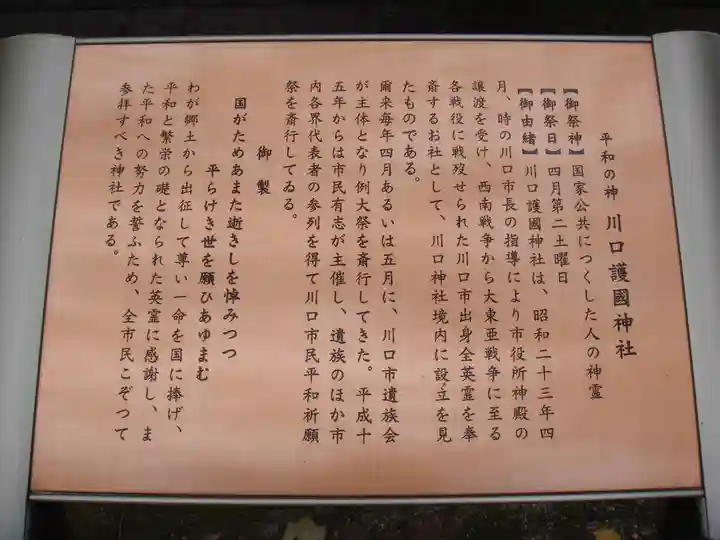 平和の神 川口護國神社
【御祭神】国家公共につくした人の神霊
【御祭日】四月第二土曜日
【御由緒】川口護國神社は、昭和二十三年四
月、時の川口市長の指導により市役所神殿の
譲渡を受け、西南戦争から大東亜戦争に至る
各戦役に戦歿せられた川口市出身全英霊を奉
斎するお社として、川口神社境内に設立を見
たものである。
爾来毎年四月あるいは五月に、川口市遺族会
が主体となり例大祭を斎行してきた。平成十
五年からは市民有志が主催し、遺族のほか市
内各界代表者の参列を得て川口市民平和祈願
祭を斎行してゐる。
御製
国がためあまた逝きしを悼みつつ
平らけき世を願ひあゆまむ
わが郷土から出征して尊い一命を国に捧げ、
平和と繁栄の礎となられた英霊に感謝し、ま
た平和への努力を誓ふため、全市民こぞつて
参拝すべき神社である。